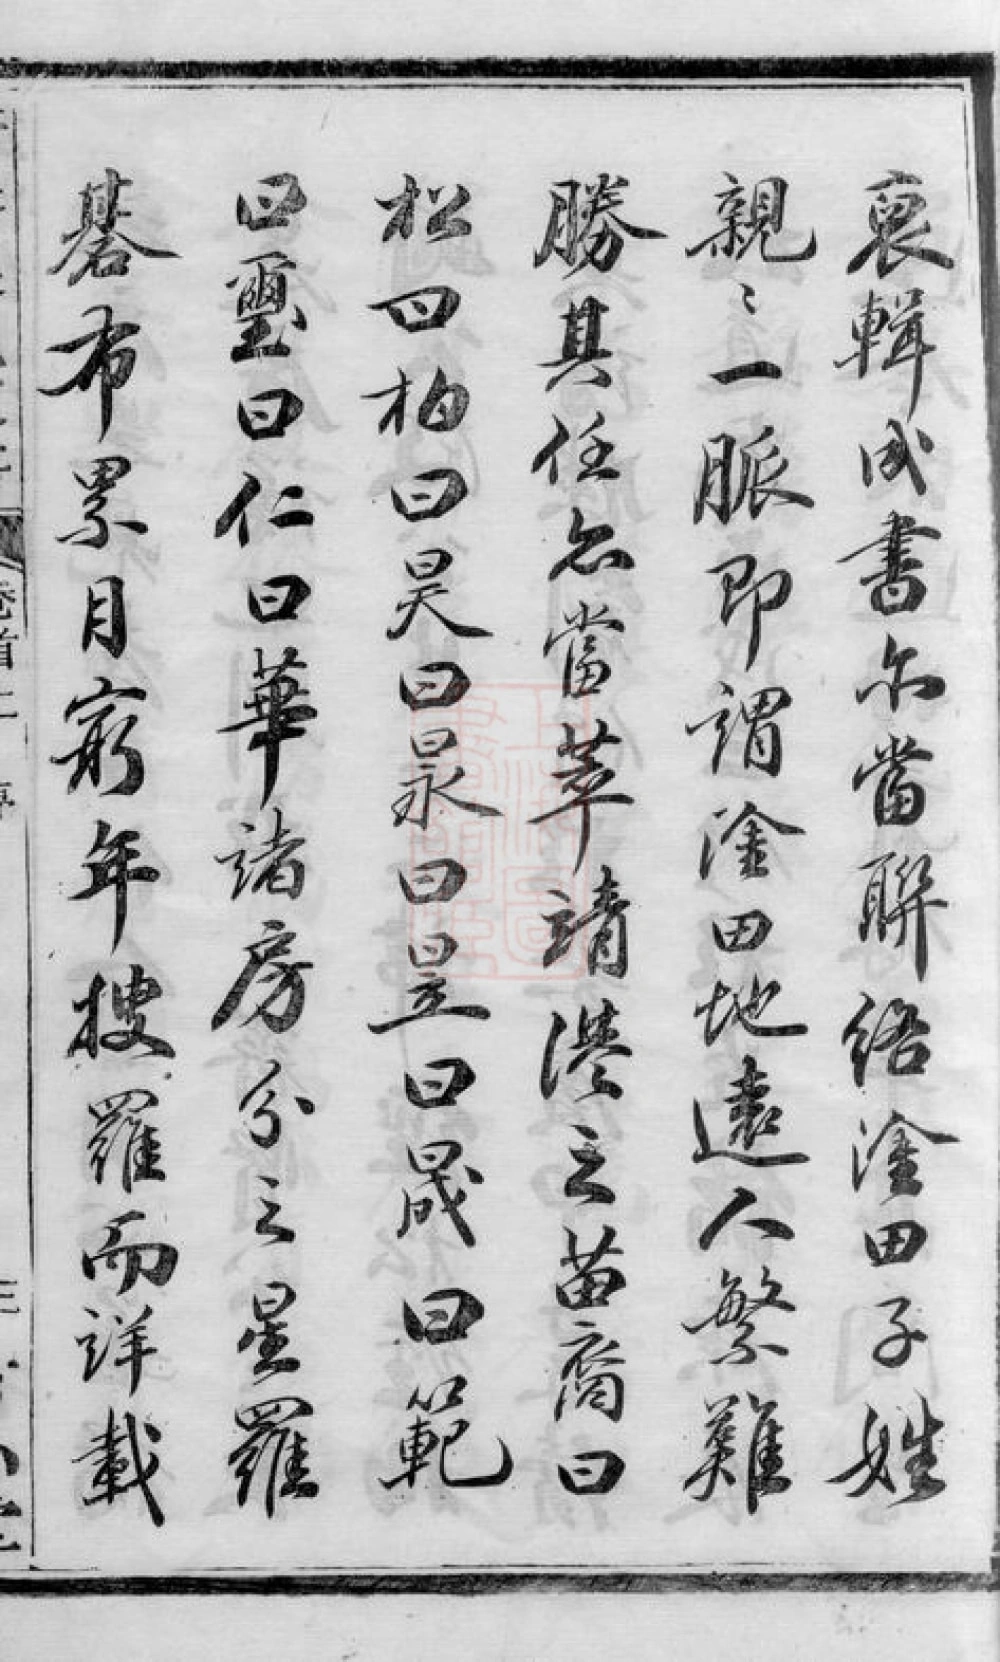 裒輯成書尔當聯絡淦田子姓
親〻一脈即謂淦田地遠人繁難
勝其任忿當萃靖港之苗裔曰
松曰柏曰昊曰㫤曰昱曰晟曰範
曰璽曰仁曰華諸房分之星羅
碁布累月窮年搜羅而詳載
卷首上 序